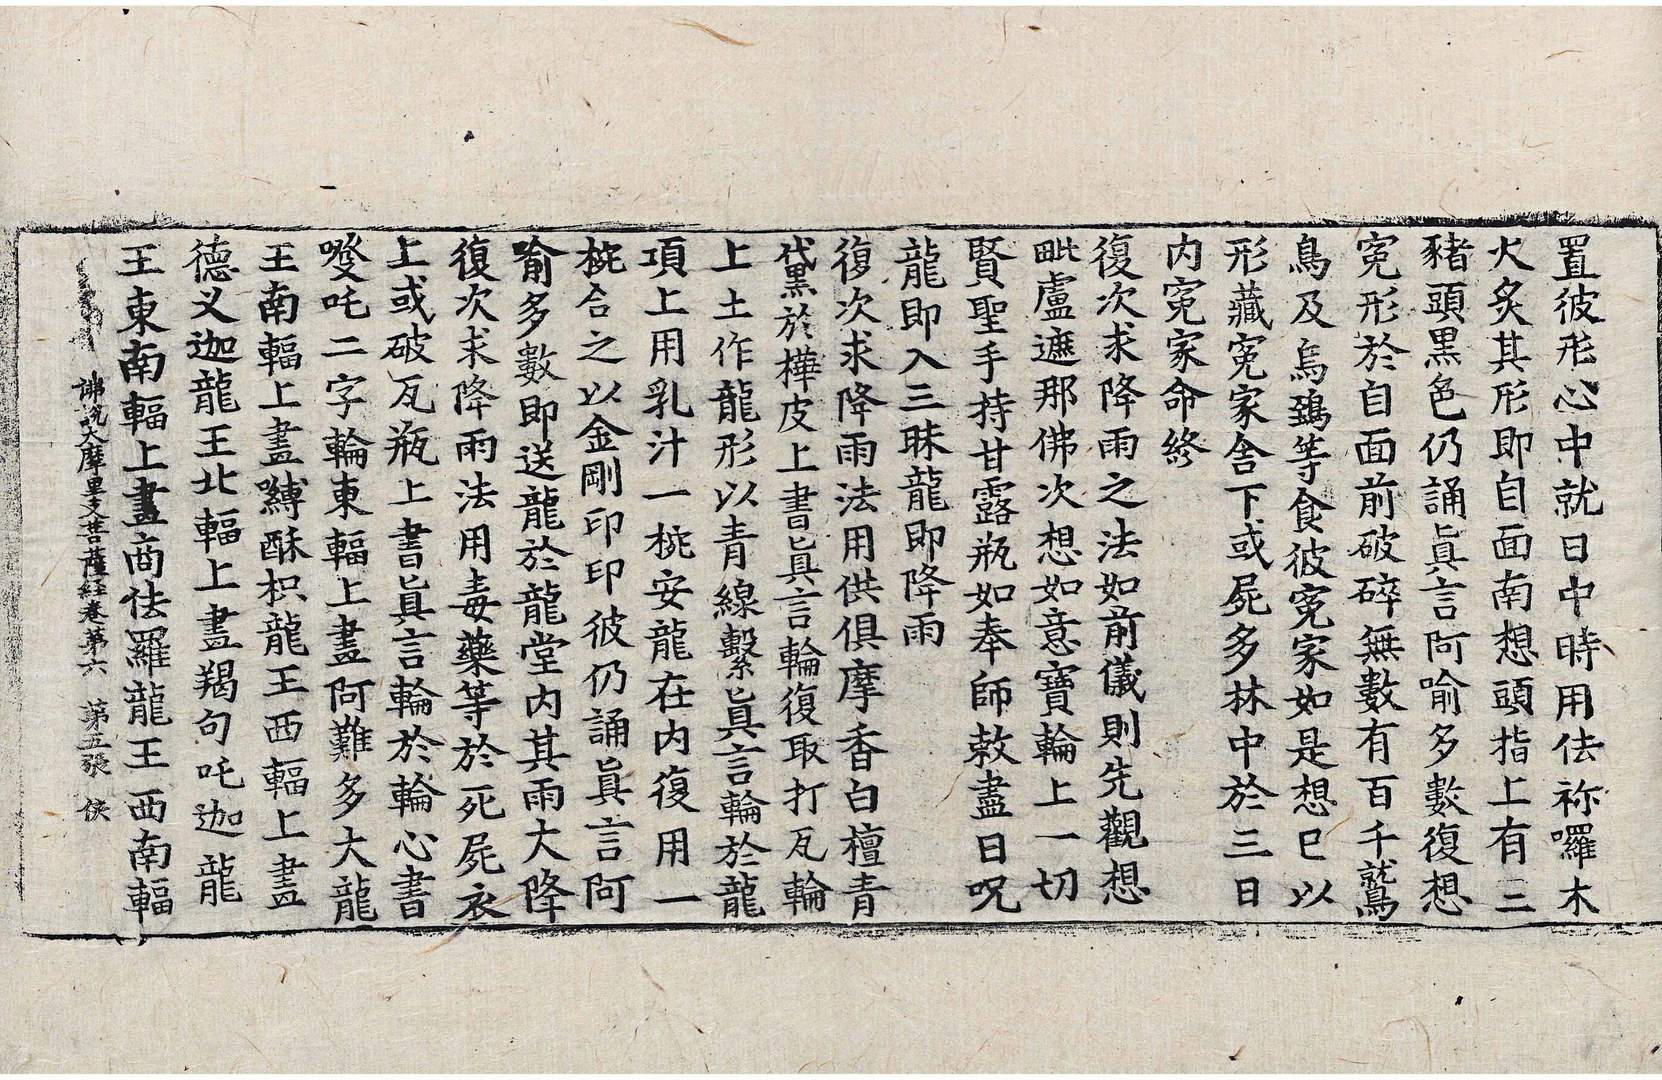 置彼形心中就日中時用佉祢囉木
火炙其形即自面南想頭指上有三
豬頭黒色仍誦眞言阿喻多數復想
寃形於自面前破碎無數有百千鷲
鳥及烏鵄等食彼寃家如是想已以
形藏寃家舍下或屍多林中於三日
内寃家命終
復次求降雨之法如前儀則先觀想
毗盧遮那佛次想如意寶輪上一切
賢聖手持甘露瓶如奉師敕盡日呪
龍即入三昧龍即降雨
復次求降雨法用供俱摩香白檀青
代黒於樺皮上書眞言輪復取打瓦輪
上土作龍形以青線繫眞言輪於龍
項上用乳汁一椀安龍在内復用一
椀合之以金剛印印彼仍誦眞言阿
喻多數即送龍於龍堂内其雨大降
復次求降雨法用毒藥等於死屍衣
上或破瓦瓶上書眞言輪於輪心書
㗚吒二字輪東輻上畫阿難多大龍
王南輻上畫嚩酥枳龍王西輻上畫
德义迦龍王北輻上畫羯句吒迦龍
王東南輻上畫商佉羅龍王西南輻
佛說大摩里支菩薩経卷第六 第五張 俠